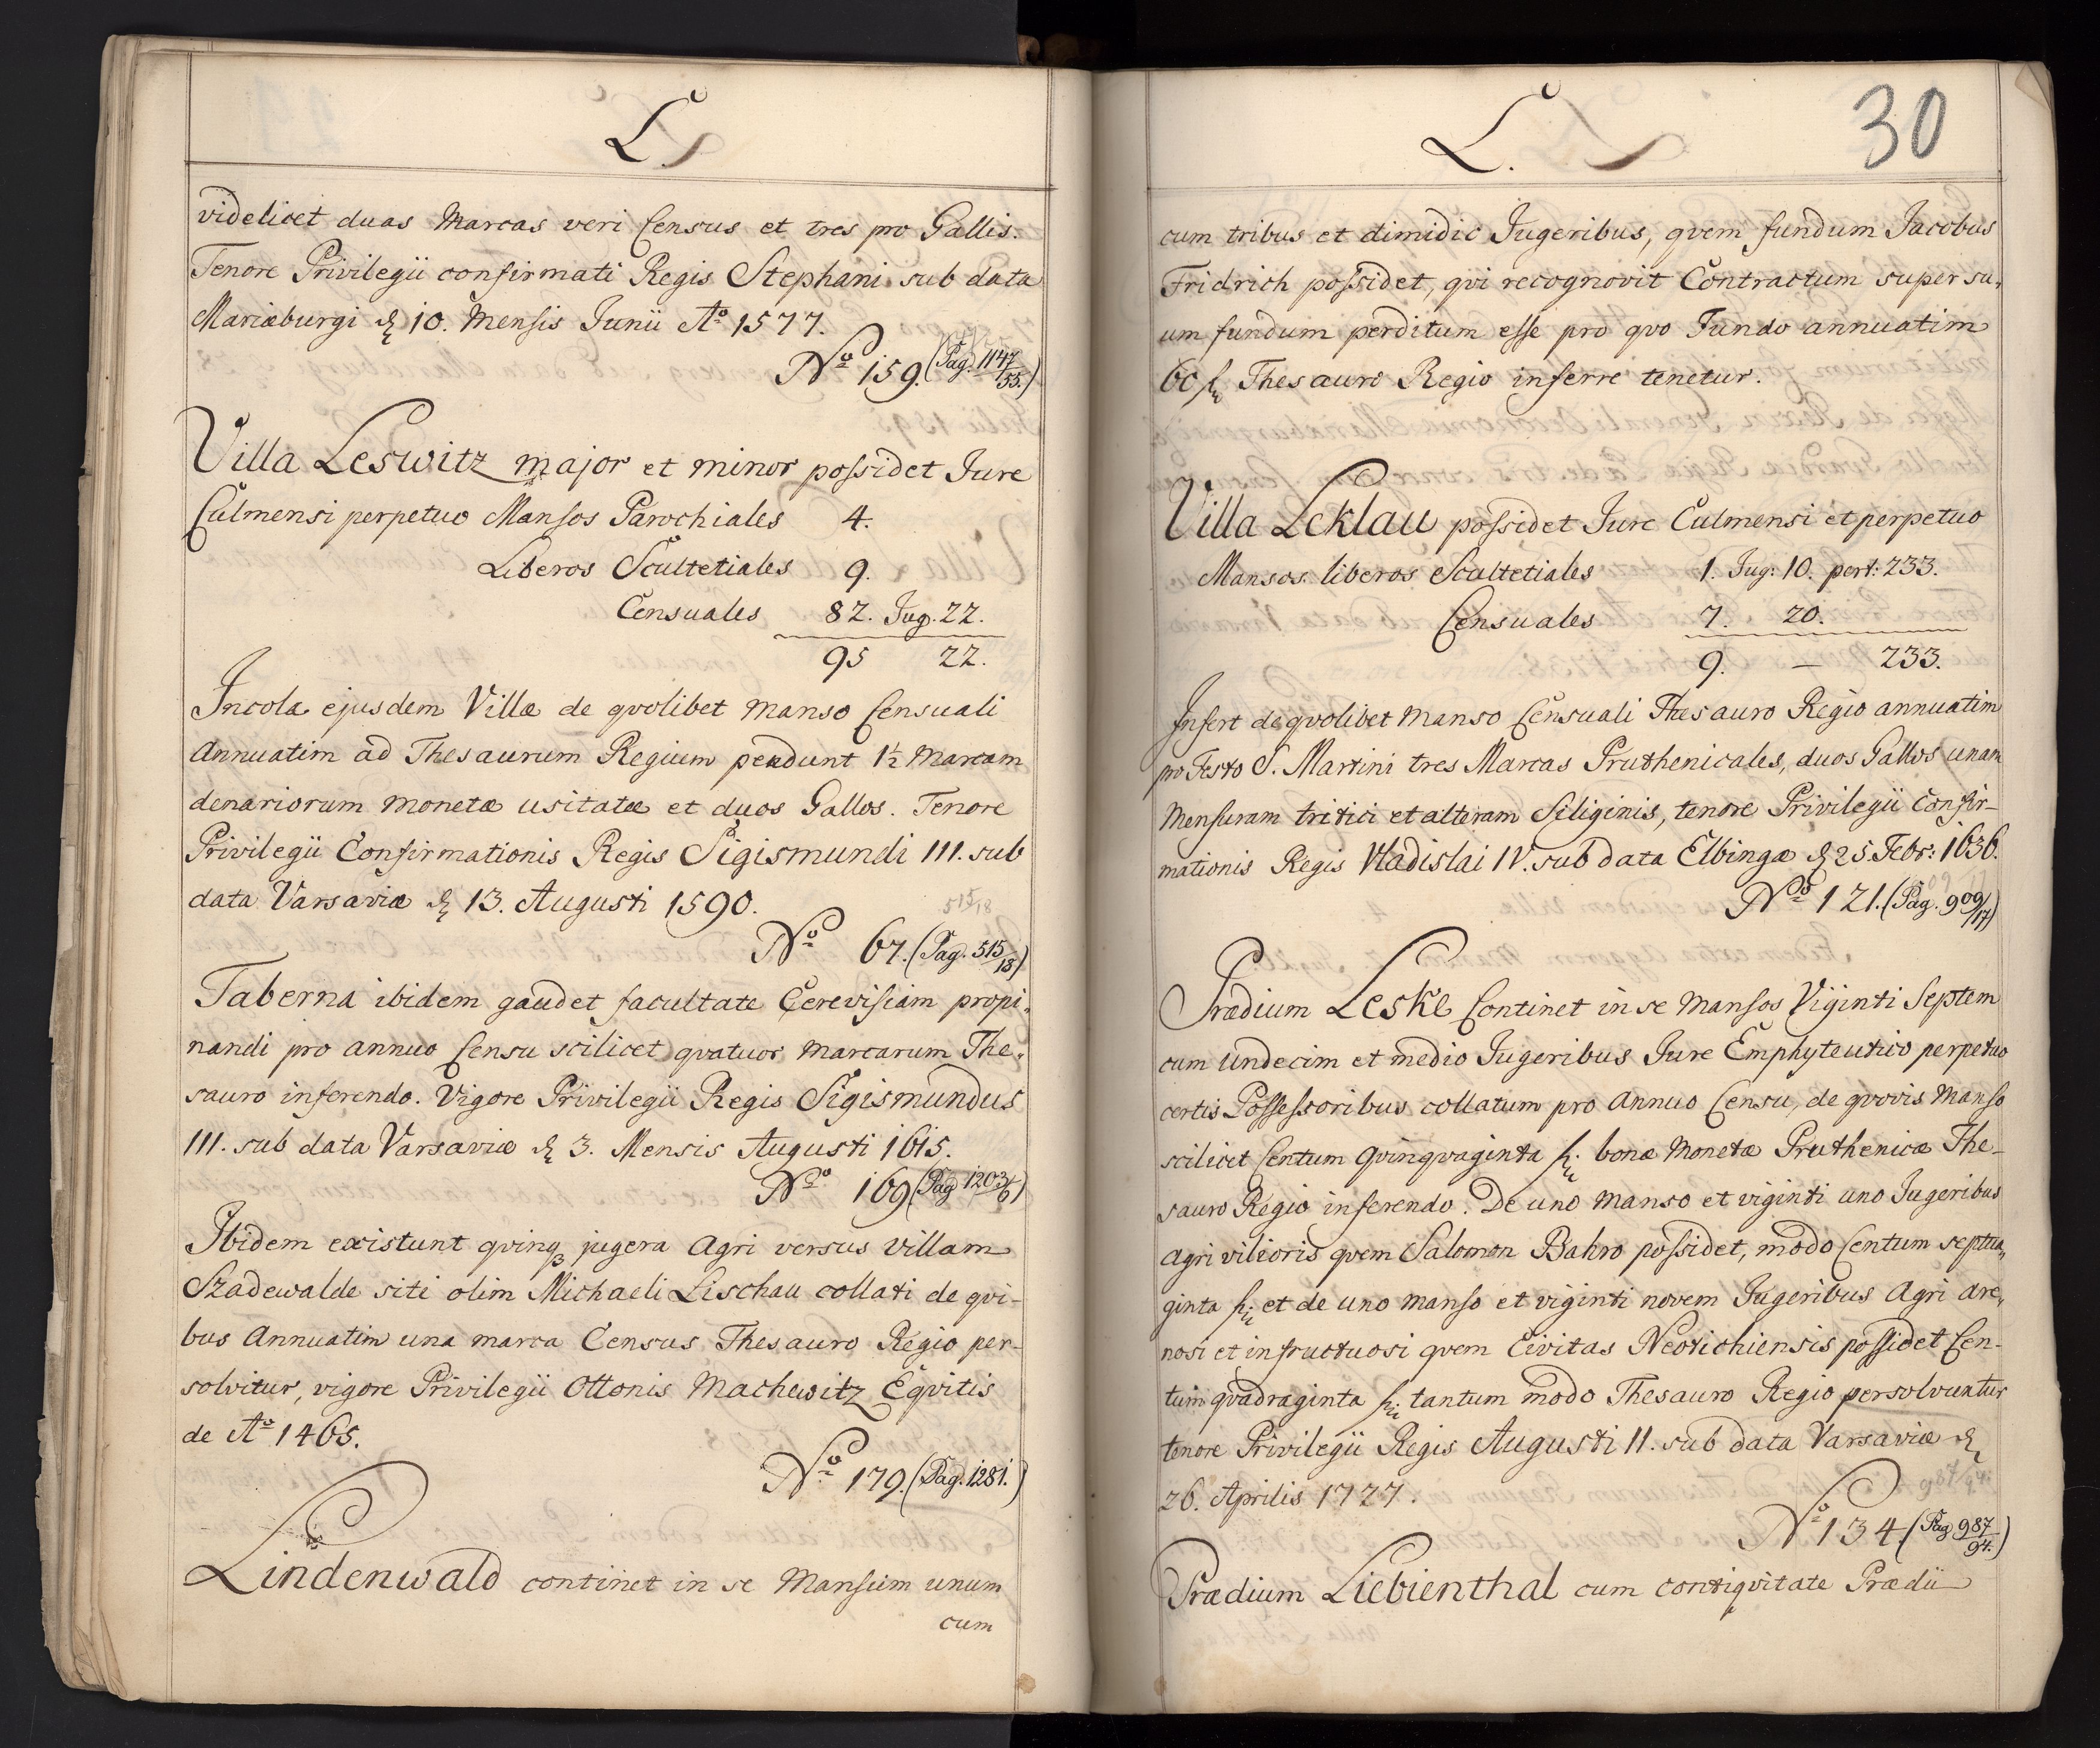 L.
videlicet duas Marcas veri Census et tres pro Gallis.
Tenore Privilegii confirmati Regis Stephani sub data
Mariæburgi d 10. Mensis Junii Aº 1577.
Nº 159. (Pag. 1147/55.)
Villa Leswitz major et minor possidet Jure
Culmensi perpetuo Mansos Parochiales 4.
Liberos Scultetiales 9.
Censuales 82. Jug. 22.
95 22.
Incolæ ejusdem Villæ de qvolibet Manso Censuali
Annuatim ad Thesaurum Regium pendunt 1½ Marcam
denariorum monetæ usitatæ et duos Gallos. Tenore
Privilegii Confirmationis Regis Sigismundi III. sub
data Varsaviæ d 13. Augusti 1590.
515/18
Nº 67. (Pag. 515/18)
Taberna ibidem gaudet facultate Cerevisiam propi-
nandi pro annuo Censu scilicet qvatuor Marcarum The-
sauro inferendo. Vigore Privilegii Regis Sigismundus
III. sub data Varsaviæ d 3. Mensis Augusti 1615.
Nº 169 (Pag 1203/6)
Ibidem existunt qvinq jugera Agri versus Villam
Szadewalde siti olim Michaeli Lischau collati de qvi-
bus Annuatim una marca Census Thesauro Regio per-
solvitur, vigore Privilegii Ottonis Machewitz Eqvitis
de Aº 1465.
Nº 179. (Pag. 1281.)
Lindenwald continet in se Mansum unum
cum
L.
30
cum tribus et dimidio Jugeribus, qvem fundum Jacobus
Fridrich possidet, qvi recognovit Contractum super su-
um fundum perditum esse pro qvo Fundo annuatim
60 f Thesauro Regio inferre tenetur.
Villa Leklau possidet Jure Culmensi et perpetuo
Mansos liberos Scultetiales 1. Jug: 10. pert: 233.
Censuales 7. 20.
9. — 233.
Infert de qvolibet Manso Censuali Thesauro Regio annuatim
pro Festo S. Martini tres Marcas Pruthenicales, duos Gallos unam
Mensuram tritici et alteram Siliginis, tenore Privilegii Confir-
mationis Regis Vladislai IV. sub data Elbingæ d 25. Febr: 1636.
Nº 121. (Pag. 909/17)
Prædium Leske Continet in se Mansos Viginti Septem
cum Undecim et medio Jugeribus Jure Emphyteutico perpetuo
certis Possessoribus collatum pro Annuo Censu, de qvovis Manso
scilicet Centum Qvinqvaginta f bonæ Monetæ Pruthenicæ The-
sauro Regio inferendo. De uno Manso et viginti uno Jugeribus
Agri vilioris qvem Salomon Bahro possidet, modo Centum septua-
ginta f et de uno Manso et viginti novem Jugeribus Agri are-
nosi et infructuosi qvem Civitas Neotichiensis possidet Cen-
tum qvadraginta f tantum modo Thesauro Regio persolvuntur
tenore Privilegii Regis Augusti II. sub data Varsaviæ d
26. Aprilis 1727.
987/94.
Nº 134. (Pag 987/94.)
Prædium Liebienthal cum contiqvitate Prædii